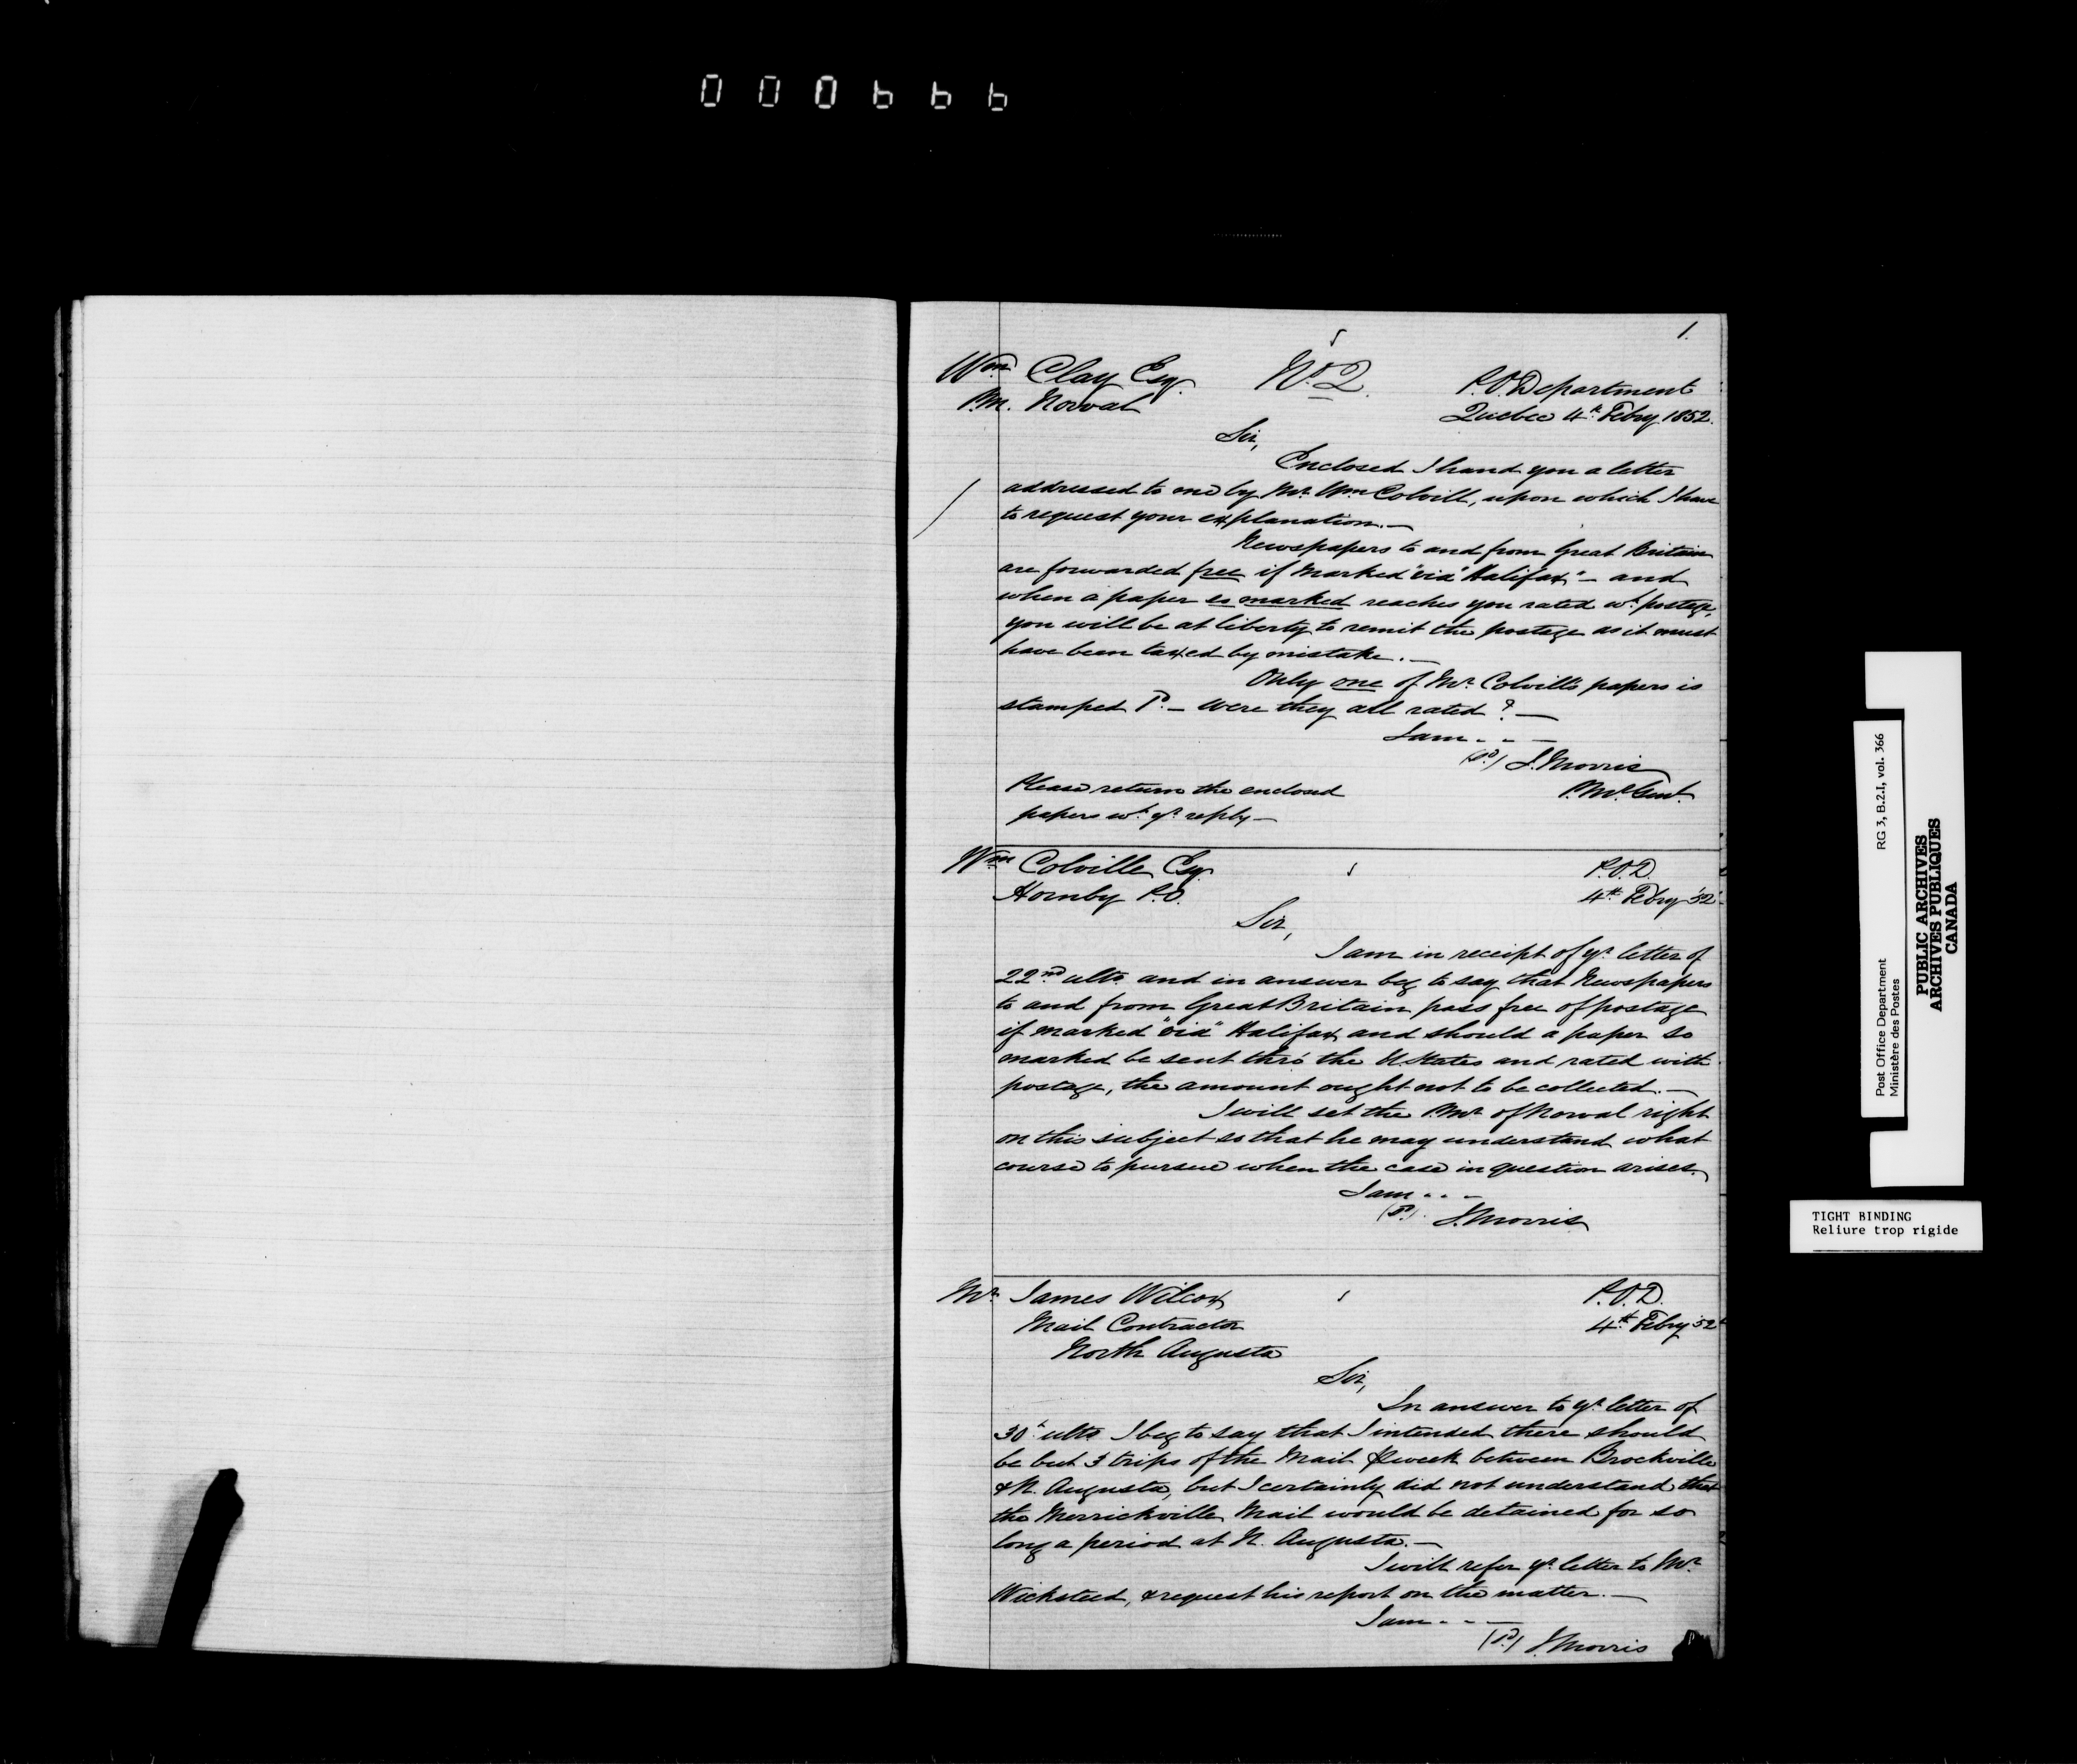 000666
1.
Wm Clay Esqr. No 2. P.O. Department
P.M. Norval Quebec 4th Febry 1852.
Sir,
Enclosed I hand you a letter
addressed to me by Mr. Wm Colvill, upon which I have
to request your explanation.—
Newspapers to and from Great Britain
are forwarded free if marked "via" Halifax"— and
when a paper so marked reaches you rated wh. postage,
you will be at liberty to remit the postage as it must
have been taxed by mistake.—
Only one of Mr. Colvill's papers is
stamped Pd.— Were they all rated?—
I am - - —
(Sd.) J. Morris
Please return the enclosed P.Mr. Genl.
papers wh. yr. reply—
Wm Colville Esqr P.O.D.
Hornby P.O. 4th Febry '52
Sir,
I am in receipt of yr. letter of
22nd ulto and in answer beg to say that Newspapers
to and from Great Britain pass free of postage
if marked "via" Halifax and should a paper so
marked be sent thro' the U. States and rated with
postage, the amount ought not to be collected.—
I will set the P.Mr. of Norval right
on this subject so that he may understand what
course to pursue when the case in question arises.
I am - - -
(Sd.) J. Morris
Mr. James Wilcox P.O.D.
Mail Contractor 4th Febry '52
North Augusta
Sir,
In answer to yr. letter of
30h ulto I beg to say that I intended there should
be but 3 trips of the Mail ⅌ week between Brockville
& N. Augusta, but I certainly did not understand that
the Merrickville Mail would be detained for so
long a period at N. Augusta.—
I will refer yr. letter to Mr.
Wicksteed, & request his report on the matter.—
I am - - —
(Sd.) J. Morris
Post Office Department RG 3, B.2.I, vol. 366
Ministère des Postes
PUBLIC ARCHIVES
ARCHIVES PUBLIQUES
CANADA
TIGHT BINDING
Reliure trop rigide